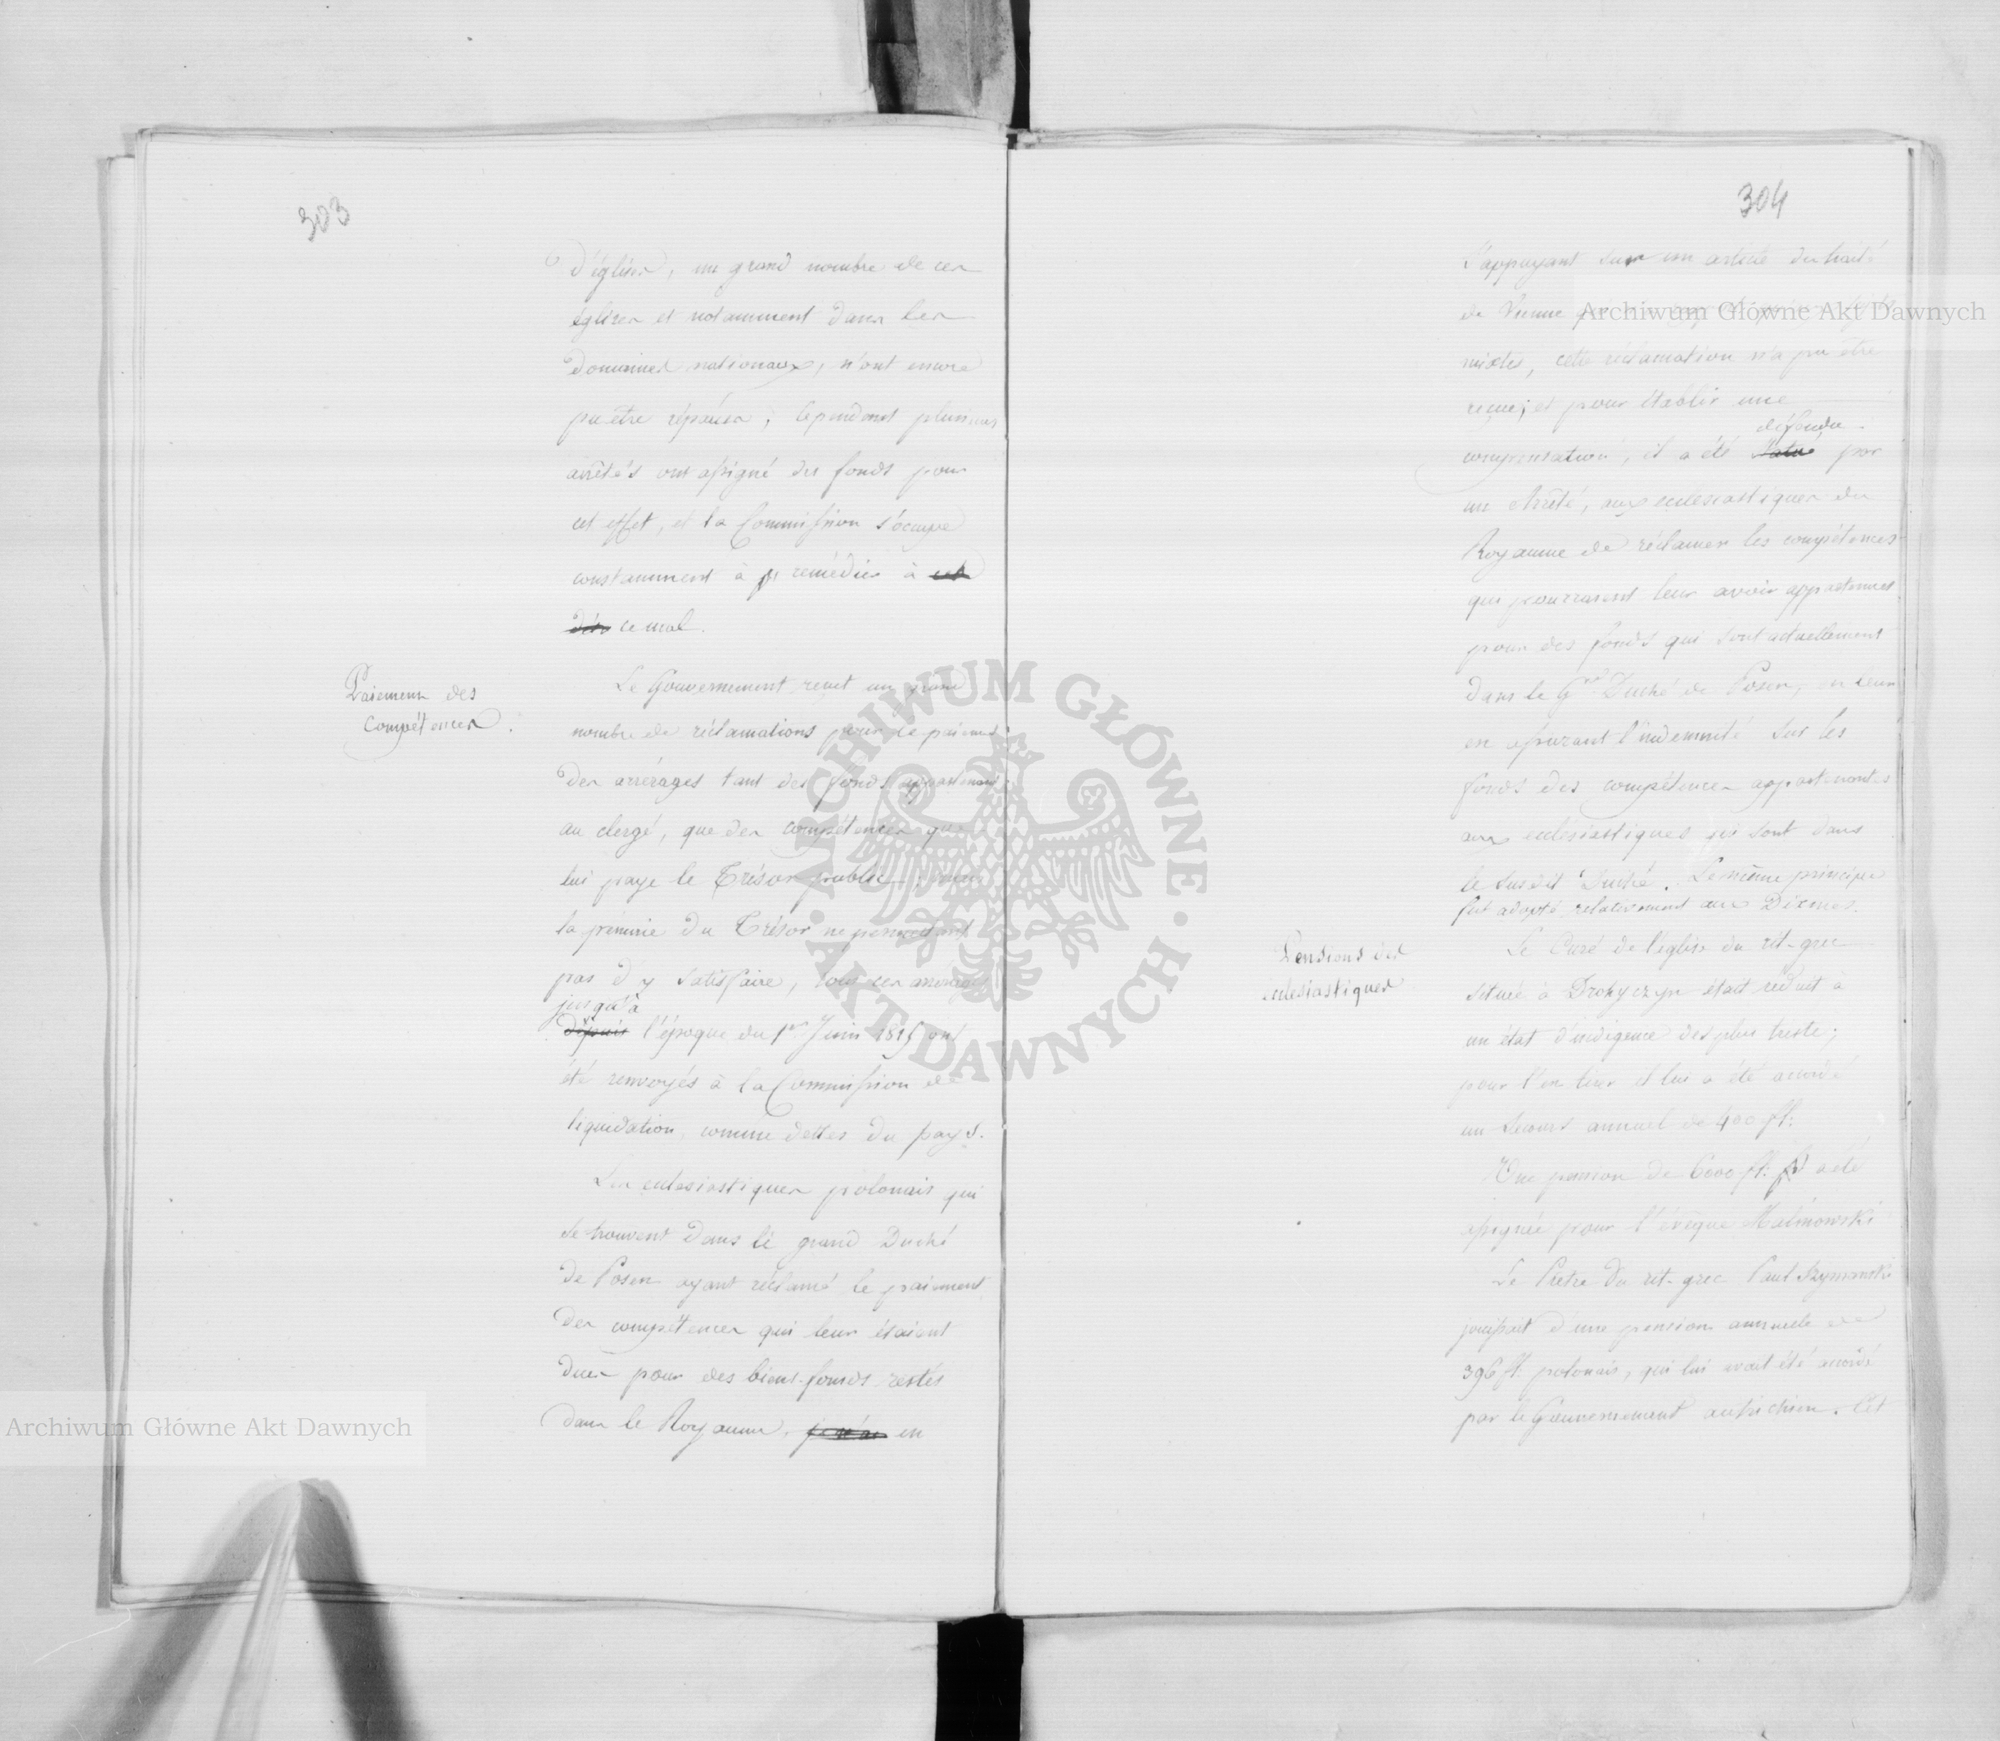 303
d'églises, un grand nombre de ces
églises et notamment dans les
domaines nationaux, n'ont encore
pu être réparées; cependant plusieurs
arrêtés ont assigné des fonds pour
cet effet, et la Commission s'occupe
constamment à remédier à
ce mal.
Paiement des
Compétences.
Le Gouvernement reçut un grand
nombre de réclamations pour le paiement
des arrérages tant des fonds appartenant
au clergé, que des compétences que
lui paye le Trésor public;
la pénurie du Trésor ne permettant
pas d'y satisfaire, tous ces arrérages
jusqu'à
depuis l'époque du 1er Juin 1815 ont
été renvoyés à la Commission de
liquidation comme dettes du pays.
Les eclesiastiques polonais qui
se trouvent dans le grand Duché
de Posen ayant réclamé le paiement
des compétences qui leur étaient
dues pour des biens-fonds restés
dans le Royaume, en
304
s'appuyant sur un article du traité
de Vienne
mixtes, cette réclamation n'a pu être
reçue; et pour établir une
défendu
compensation, il a été statué par
un Arrêté, aux eclesiastiques du
Royaume de réclamer les compétences
qui pourraient leur avoir appartenues
pour des fonds qui sont actuellement
dans le Gnd Duché de Posen, en leur
en assurant l'indemnité sur les
fonds des compétences appartenantes
aux eclésiastiques qui sont dans
le susdit Duché. Le même principe
fut adopté relativement aux Dixmes.
Pensions des
eclesiastiques
Le Curé de l'église du rit-grec
située à Drohyczyn était réduit à
un état d'indigence des plus triste;
pour l'en tirer il lui a été accordé
un secours annuel de 400 fl:
Une pension de 6000 fl: a été
assignée pour l'évêque Malinowski
Le Prêtre du rit-grec Paul Szymanski
jouissait d'une pension annuele de
396 fl. polonais, qui lui avait été accordé
par le Gouvernement autrichien. Cet
Archiwum Główne Akt Dawnych
Archiwum Główne Akt Dawnych
ARCHIWUM GŁÓWNE · AKT DAWNYCH ·